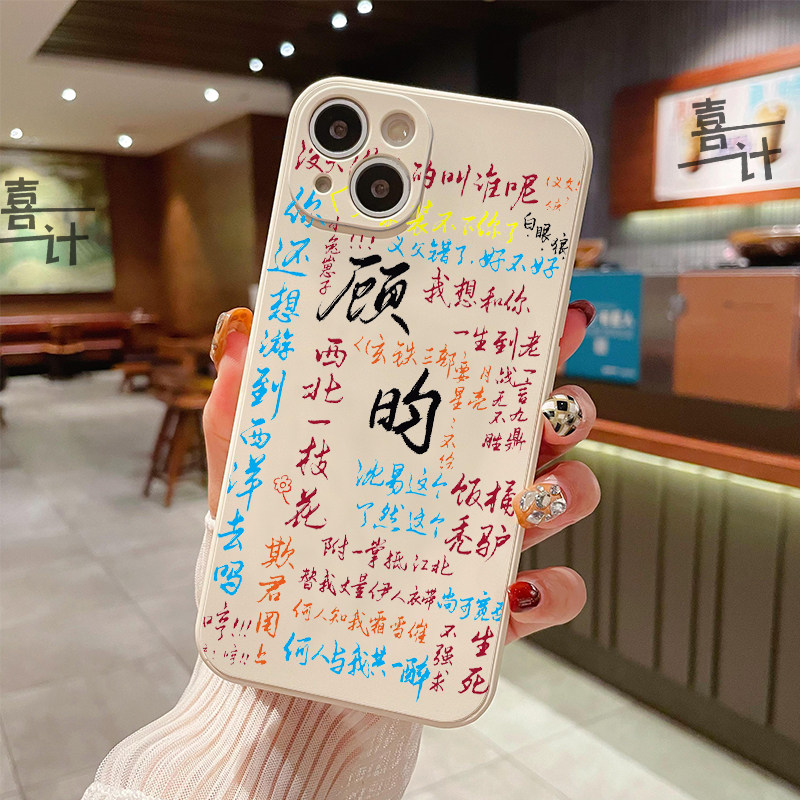 喜计
喜计
的叫谁呢
装不下你了
白眼狼
义父错了,好不好
小兔崽子
你还想游到西洋去吗
顾昀
我想和你
一生到老
西北一枝花
《玄铁三部》
要月亮
星
不给
战无不胜
一言九鼎
沈易这个
饭桶
了然这个
秃驴
欺君罔上
哼!!!
哼!!
附一掌抵江北
替我丈量伊人衣带
尚可宽否
何人知我霜雪催
何人与我共一醉
不强求
生死